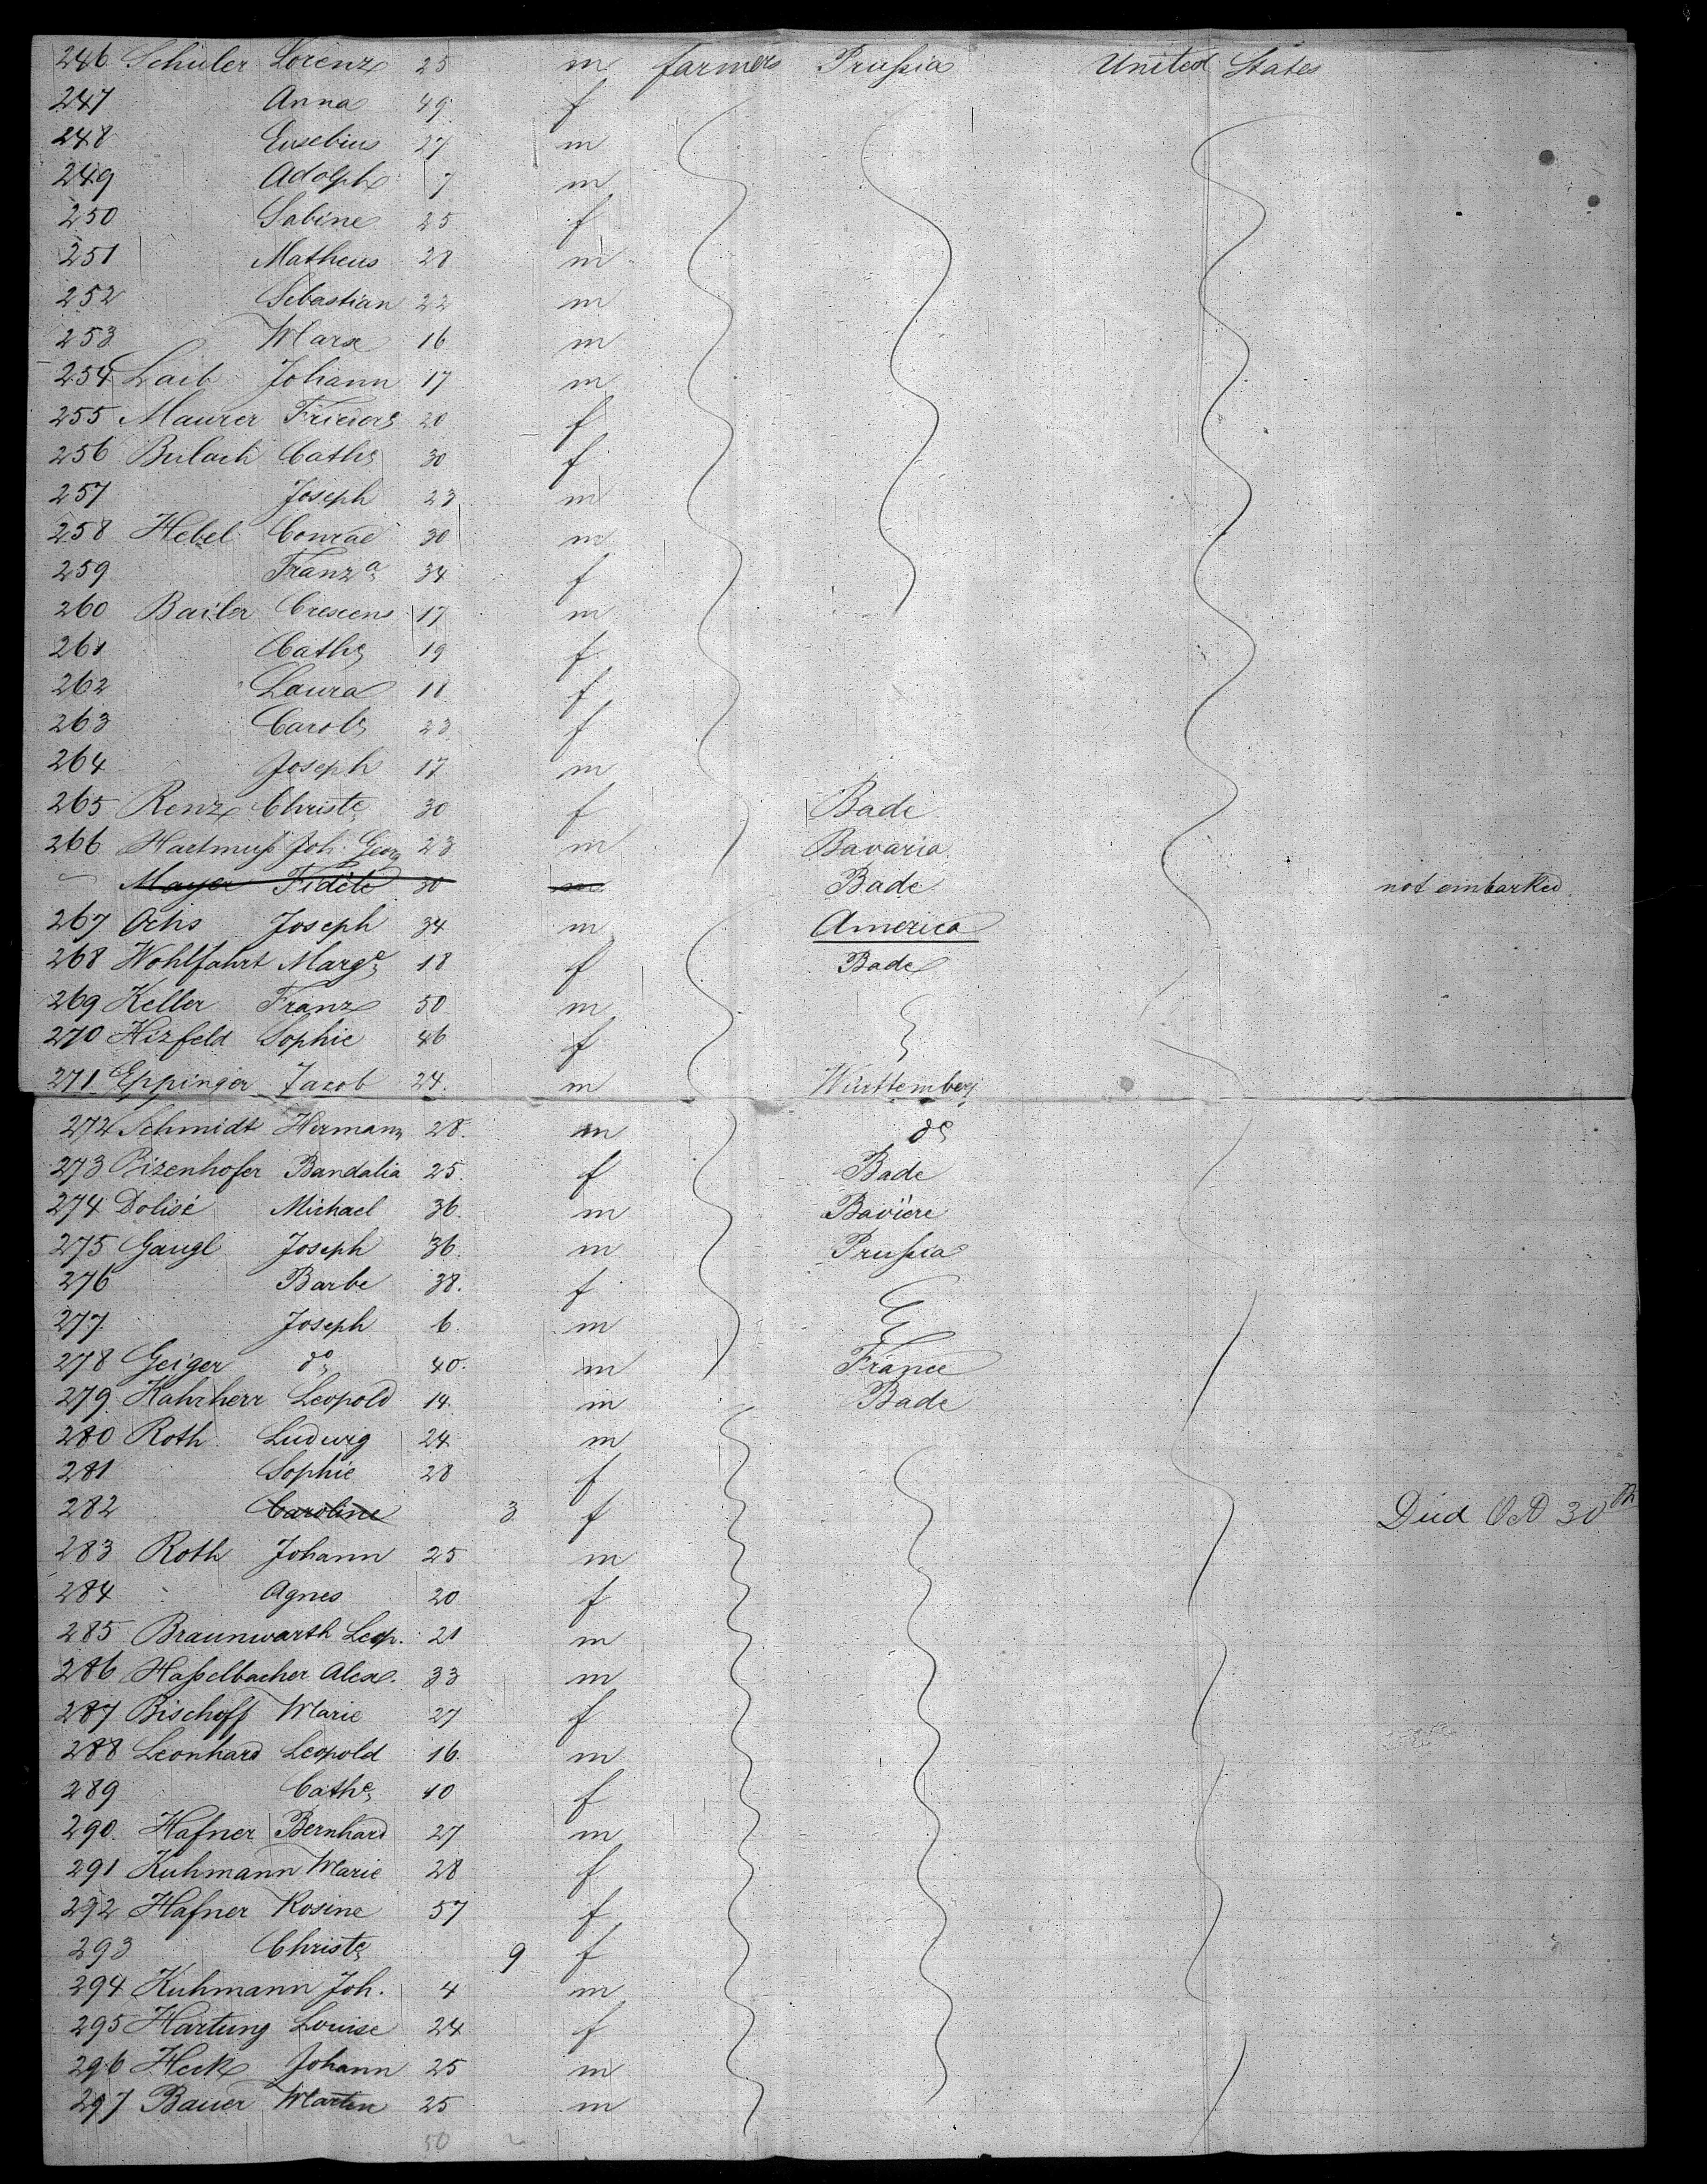 246 Schuler Lorenz 25 m farmers Prussia United States
247 Anna 49 f
248 Eusebius 27 m
249 Adolph 7 m
250 Sabine 25 f
251 Matheus 28 m
252 Sebastian 22 m
253 Marx 16 m
254 Laib Johann 17 m
255 Maurer Frieder 20 f
256 Bulach Cath 30 f
257 Joseph 23 m
258 Hebel Conrad 30 m
259 Franz a 34 f
260 Bailer Crescens 17 m
261 Cath 19 f
262 Laura 18 f
263 Carol 23 f
264 Joseph 17 m
265 Renz Christe 30 f Bade
266 Hartmuss Joh. Georg 23 m Bavaria
Mayer Fidele 30 m Bade not embarked
267 Ochs Joseph 34 m America
268 Wohlfahrt Marg e 18 f Bade
269 Keller Franz 50 m
270 Hizfeld Sophie 46 f
271 Eppinger Jacob 24. m Württemberg
272 Schmidt Hermann 28. m do
273 Bizenhofer Bandalia 25. f Bade
274 Dolisé Michael 36. m Bavière
275 Gaugl Joseph 36. m Prussia
276 Barbe 38. f
277. Joseph 6. m
278 Geiger do 40. m France
279. Kahrherr Leopold 14. m Bade
280 Roth Ludwig 24 m
281 Sophie 28 f
282 Caroline 3 f Died Oct 30th
283 Roth Johann 25 m
284 Agnes 20 f
285 Braunwarth Leop. 21 m
286 Hasselbacher Alex. 33 m
287 Bischoff Marie 27 f
288 Leonhard Leopold 16 m
289 Cathe 10 f
290. Hafner Bernhard 27 m
291 Kuhmann Marie 28 f
292 Hafner Rosine 57 f
293 Christe 9 f
294 Kuhmann Joh. 4 m
295 Hartung Louise 24 f
296 Heck Johann 25 m
297 Bauer Martin 25 m
50